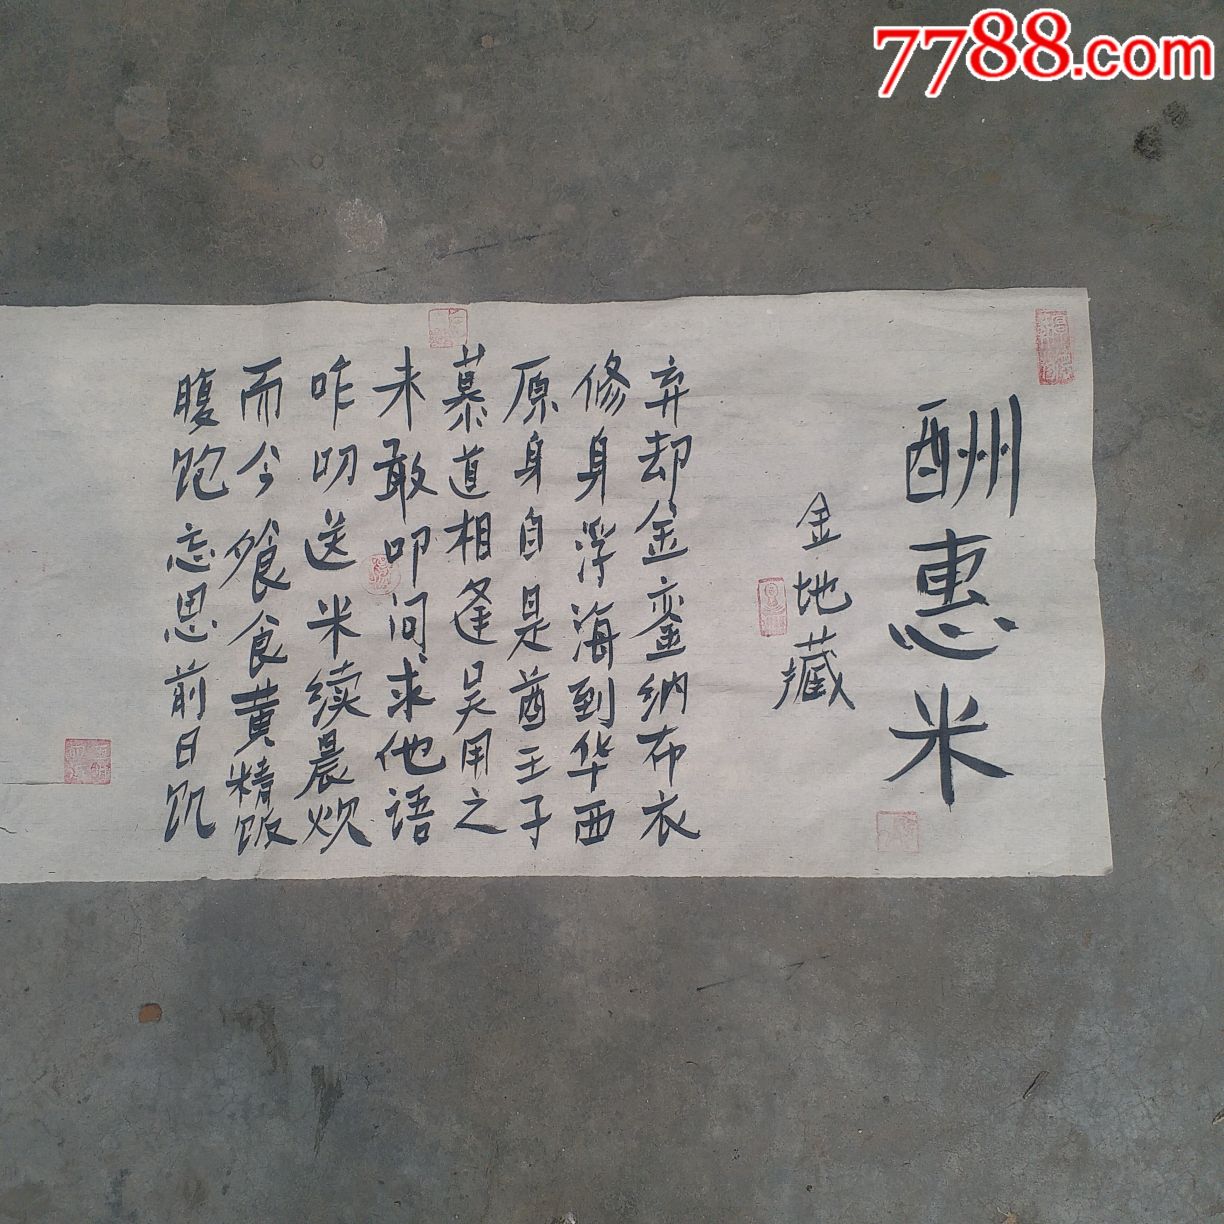 7788.com
酬惠米
金地藏
弃却金銮纳布衣
修身浮海到华西
原身自是酋王子
慕道相逢吴用之
未敢叩问求他语
咋叨送米续晨炊
而今飧食黄精饭
腹饱忘思前日饥